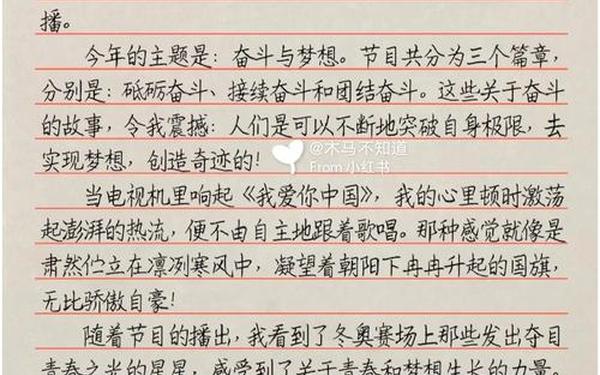 播。
今年的主题是：奋斗与梦想。节目共分为三个篇章，
分别是：砥砺奋斗、接续奋斗和团结奋斗。这些关于奋斗
的故事，令我震撼：人们是可以不断地突破自身极限，去
实现梦想，创造奇迹的！
@木马不知道
From 小红书
当电视机里响起《我爱你中国》，我的心里顿时激荡
起澎湃的热流，便不由自主地跟着歌唱。那种感觉就像是
肃然伫立在凛冽寒风中，凝望着朝阳下冉冉升起的国旗，
无比骄傲自豪！
随着节目的播出，我看到了冬奥赛场上那些发出夺目
青春之光的星星，感受到了关于青春和梦想生长的力量。